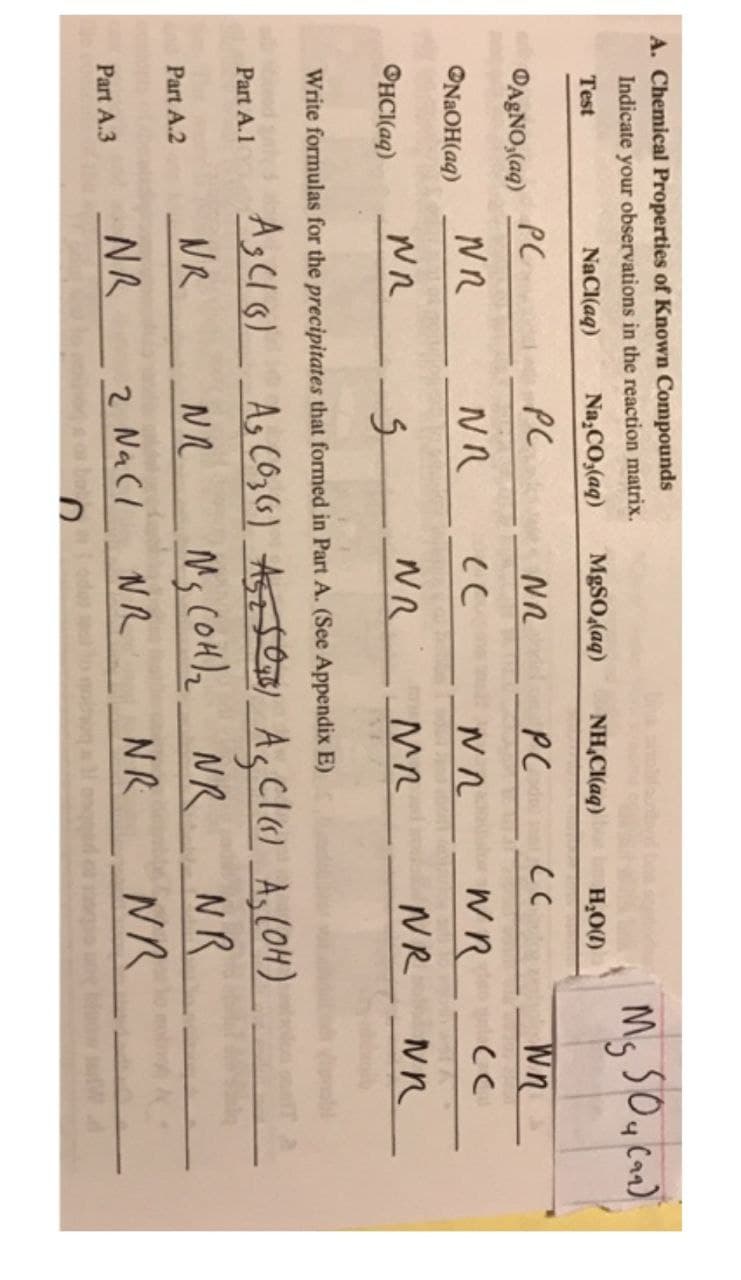 A. Chemical Properties of Known Compounds
Indicate your observations in the reaction matrix.
Test NaCl(aq) Na₂CO₃(aq) MgSO₄(aq) NH₄Cl(aq) H₂O(l) Mg SO₄(aq)
①AgNO₃(aq) PC PC NR PC CC NR
②NaOH(aq) NR NR CC NR NR CC
③HCl(aq) NR S NR NR NR NR
Write formulas for the precipitates that formed in Part A. (See Appendix E)
Part A.1 AgCl(s) AgCO₃(s) AgCl(s) Ag(OH)
Part A.2 NR NR Mg(OH)₂ NR NR
Part A.3 NR 2 NaCl NR NR NR